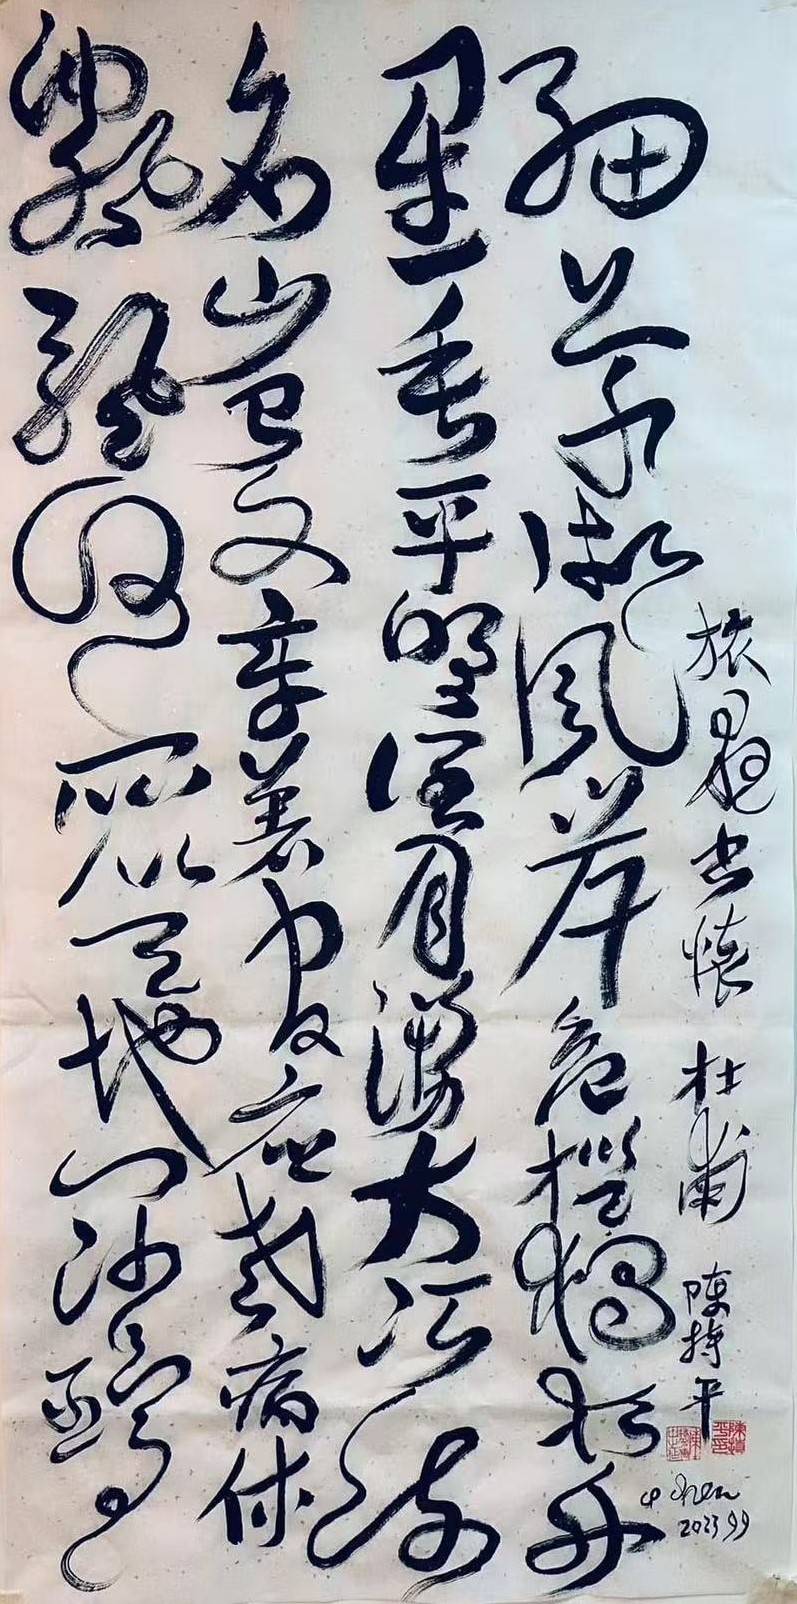 旅夜书怀 杜甫 陳持平
Chen
2023 9.9
細草微風岸危檣獨夜舟
星垂平野闊月湧大江流
名岂文章著官应老病休
飄飄何所似天地一沙鷗